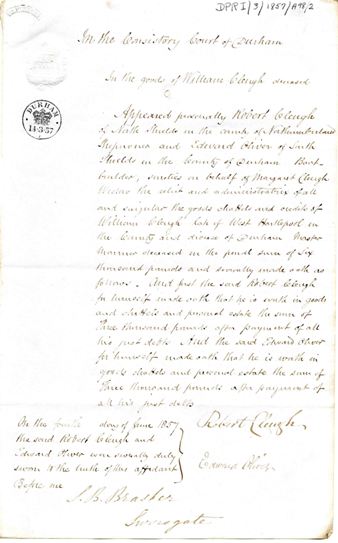 DPRI/3/1857/A98/2
In the Consistory Court of Durham
In the goods of William Clough deceased
DURHAM
14·3·57
Appeared personally Robert Clough
of North Shields in the county of Northumberland
and Edward Oliver of South
Shields in the County of Durham Boat-
builder, sureties on behalf of Margaret Clough
Widow the relict and administratrix of all
and singular the goods chattels and credits of
William Clough late of West Hartlepool in
the County and diocese of Durham Master
Mariner deceased in the penal sum of Six
thousand pounds and severally made oath as
follows. And first the said Robert Clough
for himself made oath that he is worth in goods
and chattels and personal estate the sum of
Three thousand pounds after payment of all
his just debts And the said Edward Oliver
for himself made oath that he is worth in
goods chattels and personal estate the sum of
Three thousand pounds after payment of
all his just debts
On the fourth day of June 1857
the said Robert Clough and
Edward Oliver were severally duly
sworn to the truth of this affidavit
Before me
Robert Clough
Edward Oliver
J. B. Brasher
Surrogate